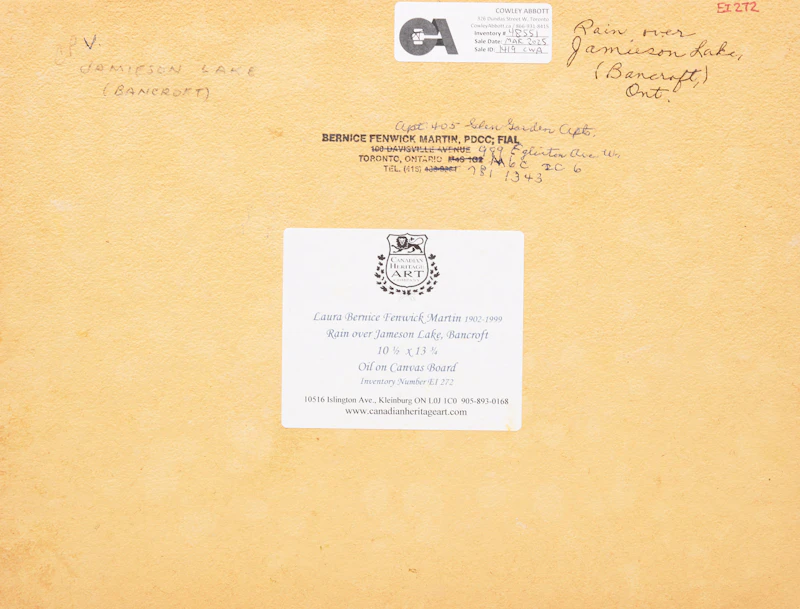 COWLEY ABBOTT
326 Dundas Street W, Toronto
CowleyAbbott.ca / 866-931-8415
Inventory # 48551
Sale Date: MAR 2025
Sale ID: 1419 CWA
CA
EI 272
Rain over
Jamieson Lake,
(Bancroft,)
Ont.
V.
JAMIESON LAKE
(BANCROFT)
Apt 405 Glen Gardens Apts.
BERNICE FENWICK MARTIN, PDCC; FIAL
100 DAVISVILLE AVENUE 999 Eglinton Ave W,
TORONTO, ONTARIO M4S 1G2 M6C 2C6
TEL. (416) 781 1343
CANADIAN
HERITAGE
ART
Laura Bernice Fenwick Martin 1902-1999
Rain over Jameson Lake, Bancroft
10 ½ x 13 ¾
Oil on Canvas Board
Inventory Number EI 272
10516 Islington Ave., Kleinburg ON L0J 1C0 905-893-0168
www.canadianheritageart.com